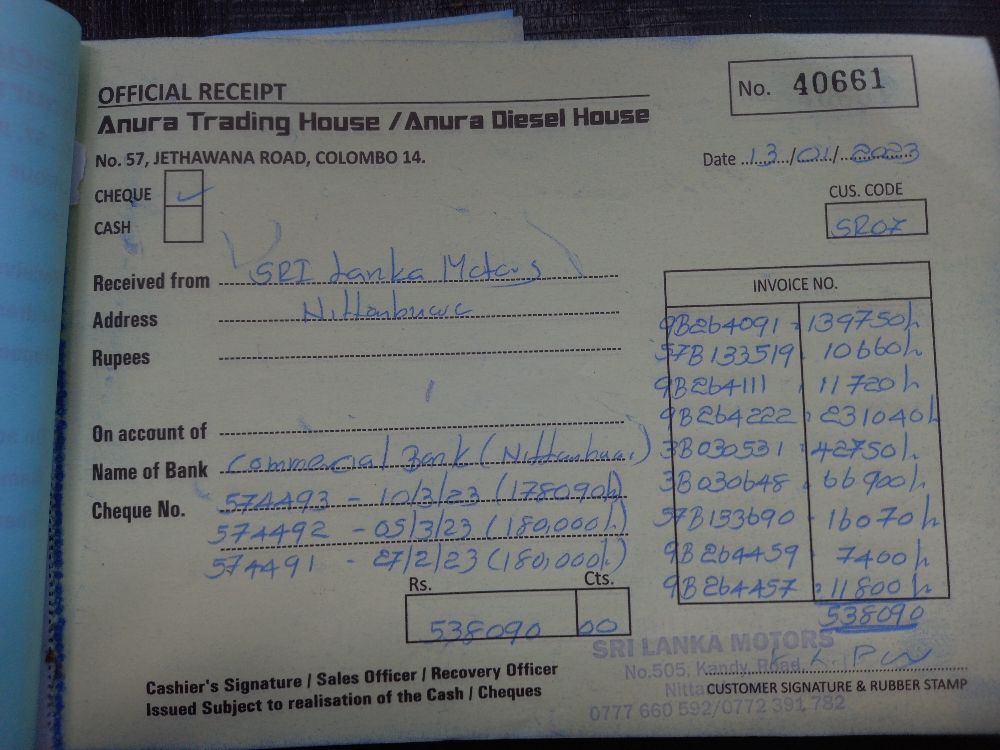 OFFICIAL RECEIPT
No. 40661
Anura Trading House / Anura Diesel House
No. 57, JETHAWANA ROAD, COLOMBO 14.
Date 13/01/2023
CHEQUE ✓
CASH
CUS. CODE
SR07
Received from SRI Lanka Motors
Address Nittambuwa
Rupees
On account of
Name of Bank Commercial Bank (Nittambuwa)
Cheque No. 574493 - 10/3/23 (178090/-)
574492 - 05/3/23 (180,000/-)
574491 - 27/2/23 (180,000/-)
INVOICE NO.
9B264091 - 139750/-
57B133519 - 10660/-
9B264111 - 11720/-
9B264222 - 231040/-
3B030531 - 42750/-
3B030648 - 66900/-
57B133690 - 16070/-
9B264459 - 7400/-
9B264457 - 11800/-
538090
Rs. Cts.
538090 00
SRI LANKA MOTORS
No.505, Kandy Road
Nitta
0777 660 592/0772 391 782
CUSTOMER SIGNATURE & RUBBER STAMP
Cashier's Signature / Sales Officer / Recovery Officer
Issued Subject to realisation of the Cash / Cheques